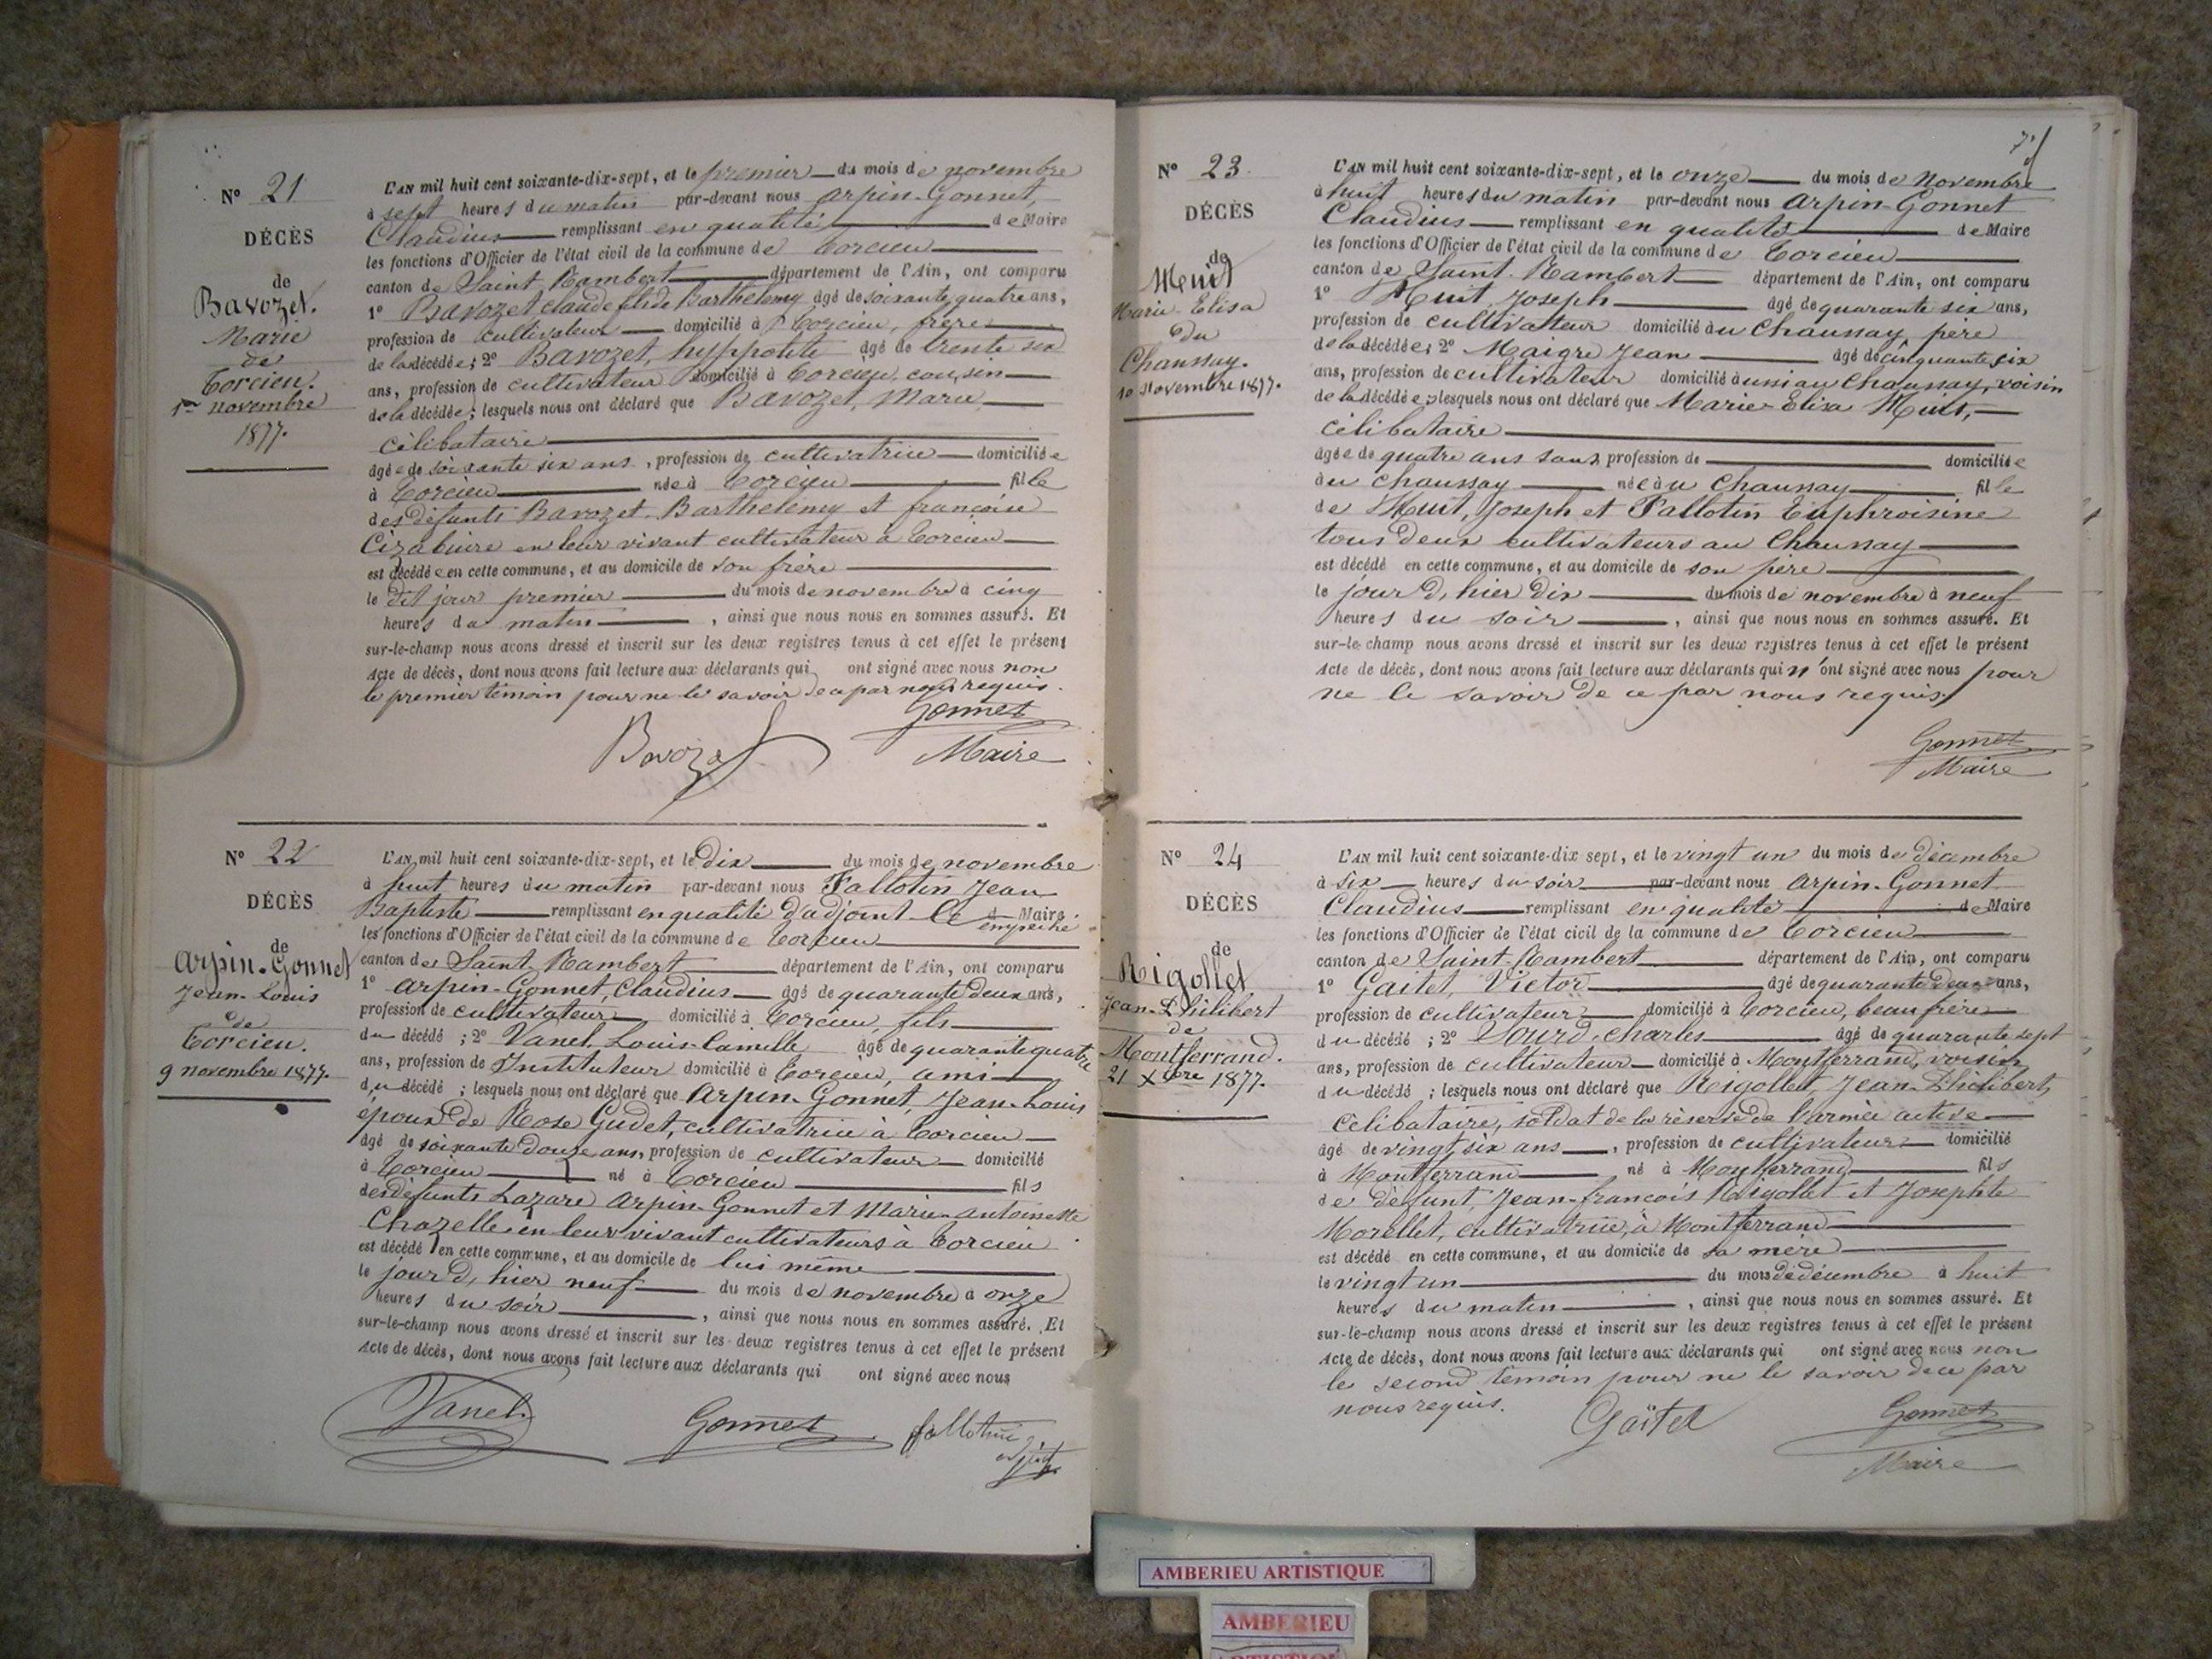 N° 21
DÉCÈS
de
Bavozet.
Marie
de
Torcieu.
1er novembre
1877.
L'AN mil huit cent soixante-dix-sept, et le premier du mois de novembre
à sept heures du matin par-devant nous Arpin-Gonnet,
Claudius remplissant en qualité de Maire
les fonctions d'Officier de l'état civil de la commune de Torcieu
canton de Saint Rambert département de l'Ain, ont comparu
1° Bavozet claude fils de Barthelemy âgé de soixante quatre ans,
profession de cultivateur domicilié à Torcieu, frère
de la décédée; 2° Bavozet, hyppolite âgé de trente six
ans, profession de cultivateur domicilié à Torcieu, cousin
de la décédée; lesquels nous ont déclaré que Bavozet, Marie
célibataire
âgée de soixante six ans, profession de cultivatrice domiciliée
à Torcieu née à Torcieu fille
des défunts Bavozet Barthelemy et françoise
en leur vivant cultivateur à Torcieu
est décédée en cette commune, et au domicile de son frère
le dit jour premier du mois de novembre à cinq
heures du matin, ainsi que nous nous en sommes assuré. Et
sur-le-champ nous avons dressé et inscrit sur les deux registres tenus à cet effet le présent
Acte de décès, dont nous avons fait lecture aux déclarants qui ont signé avec nous non
le premier témoin pour ne le savoir de ce par nous requis.
Gonnet
Bavozet Maire
N° 22
DÉCÈS
de
Arpin-Gonnet
Jean-Louis
de
Torcieu.
9 novembre 1877.
L'AN mil huit cent soixante-dix-sept, et le dix du mois de novembre
à huit heures du matin par-devant nous Fallotin Jean
Baptiste remplissant en qualité d'adjoint le Maire empêché
les fonctions d'Officier de l'état civil de la commune de Torcieu
canton de Saint Rambert département de l'Ain, ont comparu
1° Arpin-Gonnet, Claudius âgé de quarante deux ans,
profession de cultivateur domicilié à Torcieu, fils
du décédé; 2° Vanel, Louis-Camille âgé de quarante quatre
ans, profession de Instituteur domicilié à Torcieu, ami
du décédé; lesquels nous ont déclaré que Arpin-Gonnet, Jean-Louis
époux de Rose Gudet, cultivatrice à Torcieu
âgé de soixante douze ans, profession de cultivateur domicilié
à Torcieu né à Torcieu fils
des défunts Lazare Arpin-Gonnet et Marie-Antoinette
Chazelle en leur vivant cultivateurs à Torcieu
est décédé en cette commune, et au domicile de lui même
le jour d'hier neuf du mois de novembre à onze
heures du soir, ainsi que nous nous en sommes assuré. Et
sur-le-champ nous avons dressé et inscrit sur les deux registres tenus à cet effet le présent
Acte de décès, dont nous avons fait lecture aux déclarants qui ont signé avec nous
Vanel. Gonnet fallotin
adjoint
N° 23.
DÉCÈS
de
Muit
Marie-Elisa
du
Chaussay.
10 novembre 1877.
L'AN mil huit cent soixante-dix-sept, et le onze du mois de novembre
à huit heures du matin par-devant nous Arpin-Gonnet
Claudius remplissant en qualité de Maire
les fonctions d'Officier de l'état civil de la commune de Torcieu
canton de Saint-Rambert département de l'Ain, ont comparu
1° Muit, Joseph âgé de quarante six ans,
profession de cultivateur domicilié au Chaussay, père
de la décédée; 2° Maigre Jean âgé de cinquante six
ans, profession de cultivateur domicilié aussi au Chaussay, voisin
de la décédée; lesquels nous ont déclaré que Marie-Elisa Muit,
célibataire
âgée de quatre ans sans profession de domiciliée
au Chaussay née au Chaussay fille
de Muit, Joseph et Fallotin Euphroisine
tous deux cultivateurs au Chaussay
est décédé en cette commune, et au domicile de son père
le jour d'hier dix du mois de novembre à neuf
heures du soir, ainsi que nous nous en sommes assuré. Et
sur-le-champ nous avons dressé et inscrit sur les deux registres tenus à cet effet le présent
Acte de décès, dont nous avons fait lecture aux déclarants qui n'ont signé avec nous pour
ne le savoir de ce par nous requis.
Gonnet
Maire
N° 24
DÉCÈS
de
Rigollet
Jean-Philibert
de
Montferrand.
21 Xbre 1877.
L'AN mil huit cent soixante-dix sept, et le vingt un du mois de décembre
à six heures du soir par-devant nous Arpin-Gonnet
Claudius remplissant en qualité de Maire
les fonctions d'Officier de l'état civil de la commune de Torcieu
canton de Saint-Rambert département de l'Ain, ont comparu
1° Gaitet, Victor âgé de quarante deux ans,
profession de cultivateur domicilié à Torcieu, beau frère
du décédé; 2° Sourd, charles âgé de quarante sept
ans, profession de cultivateur domicilié à Montferrand, voisin
du décédé; lesquels nous ont déclaré que Rigollet Jean-Philibert,
célibataire, soldat de la réserve de l'armée active
âgé de vingt six ans, profession de cultivateur domicilié
à Montferrand né à Montferrand fils
de défunt, Jean-françois Rigollet et Josephte
Morellet, cultivatrice, à Montferrand
est décédé en cette commune, et au domicile de sa mère
le vingt un du mois de décembre à huit
heures du matin, ainsi que nous nous en sommes assuré. Et
sur-le-champ nous avons dressé et inscrit sur les deux registres tenus à cet effet le présent
Acte de décès, dont nous avons fait lecture aux déclarants qui ont signé avec nous non
le second témoin pour ne le savoir de ce par
nous requis. Gaitet Gonnet
Maire
AMBERIEU ARTISTIQUE
AMBERIEU
ARTISTIQUE